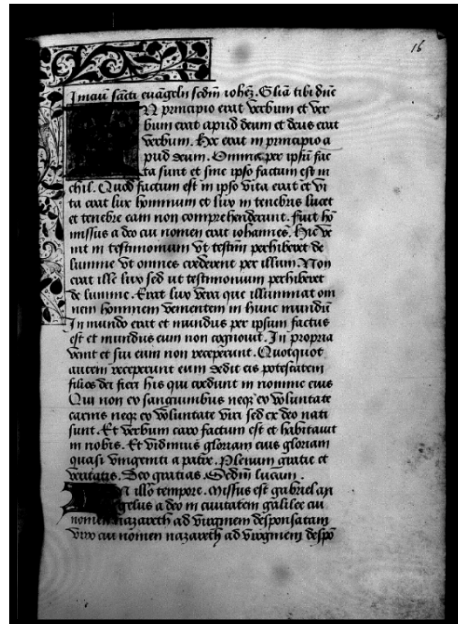 16
Imaũ sãcti euãgelii scdm̃ iohẽz. Gliã tibi dñe
N principio erat verbum et ver
bum erat apud deum et deus erat
verbum. Hoc erat in principio a
pud deum. Omnia per ipsũ fac
ta sunt et sine ipso factum est ni
chil. Quod factum est in ipso vita erat et vi
ta erat lux hominum et lux in tenebris lucet
et tenebre eam non comprehenderunt. fuit hõ
missus a deo cui nomen erat iohannes. Hic ve
nit in testimonium vt testim̃ perhiberet de
lumine vt omnes crederent per illum Non
erat ille lux sed ut testimonium perhiberet
de lumine. Erat lux vera que illuminat om
nem hominem venientem in hunc mundũ
In mundo erat et mundus per ipsum factus
est et mundus eum non cognouit. In propria
venit et sui eum non receperunt. Quotquot
autem receperunt eum dedit eis potestatem
filios dei fieri his qui credunt in nomine eius
Qui non ex sanguinibus neqꝫ ex voluntate
carnis neqꝫ ex voluntate viri sed ex deo nati
sunt. Et verbum caro factum est et habitauit
in nobis. Et vidimus gloriam eius gloriam
quasi vnigeniti a patre. Plenum gratie et
veritatis. Deo gratias. Scdm̃ lucam.
N illo tempore. Missus est gabriel an
gelus a deo in ciuitatem galilee cui
nomen nazareth ad virginem desponsatam
viro cui nomen nazareth ad virginem despõ